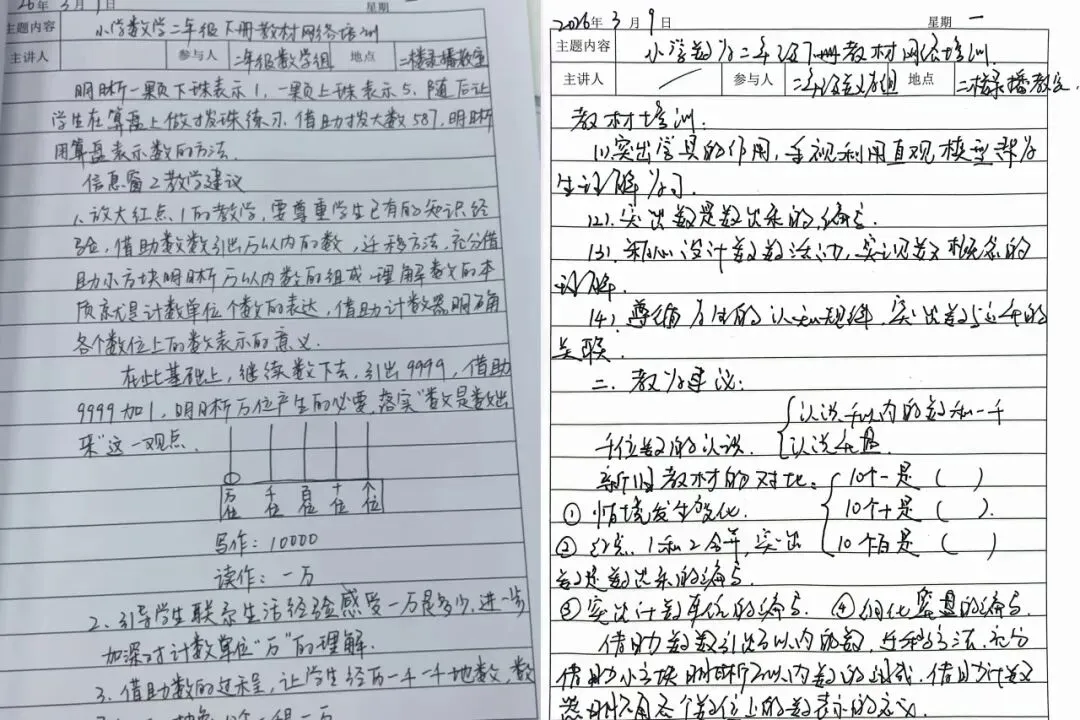 26年3月9日 星期
主题内容 小学数学二年级下册教材网络培训
主讲人 参与人 二年级数学组 地点 二楼录播教室
明晰一颗下珠表示1,一颗上珠表示5,随后让
学生在算盘上做拨珠练习.借助拨大数587,明晰
用算盘表示数的方法.
信息窗2教学建议
1、放大红点1的教学,要尊重学生已有的知识经
验,借助数数引出万以内的数,迁移方法,充分借
助小方块明晰万以内数的组成.理解数的本
质就是计数单位个数的表达,借助计数器明确
各个数位上的数表示的意义.
在此基础上,继续数下去,引出9999,借助
9999加1,明晰万位产生的必要.落实“数是数出
来”这一观点.
万位 千位 百位 十位 个位
写作:10000
读作:一万
2、引导学生联系生活经验感受一万是多少,进一步
加深对计数单位“万”的理解.
3、借助数的过程,让学生经历一千一千地数,数
2026年3月9日 星期一
主题内容 小学数学二年级下册教材网络培训.
主讲人 参与人 二年级数学组 地点 二楼录播教室.
教材培训:
(1)突出学具的作用,重视利用直观模型帮学
生理解学习.
(2).突出数是数出来的
(3).设计数数活动,实现数概念的
理解.
(4).遵循学生的认知规律.突出数与运算的
关联.
二.教学建议:
千位数的认识. 认识千以内的数和一千
认识算盘.
新旧教材的对比: 10个一是( )
①情境发生变化. 10个十是( ).
②红点1和2合并,突出 10个百是( )
数是数出来的
③突出计数单位的 ④
借助数数引出万以内的数,迁移方法.充分
借助小方块明晰万以内数的组成.借助计数
器明确各个数位上的数表示的意义.